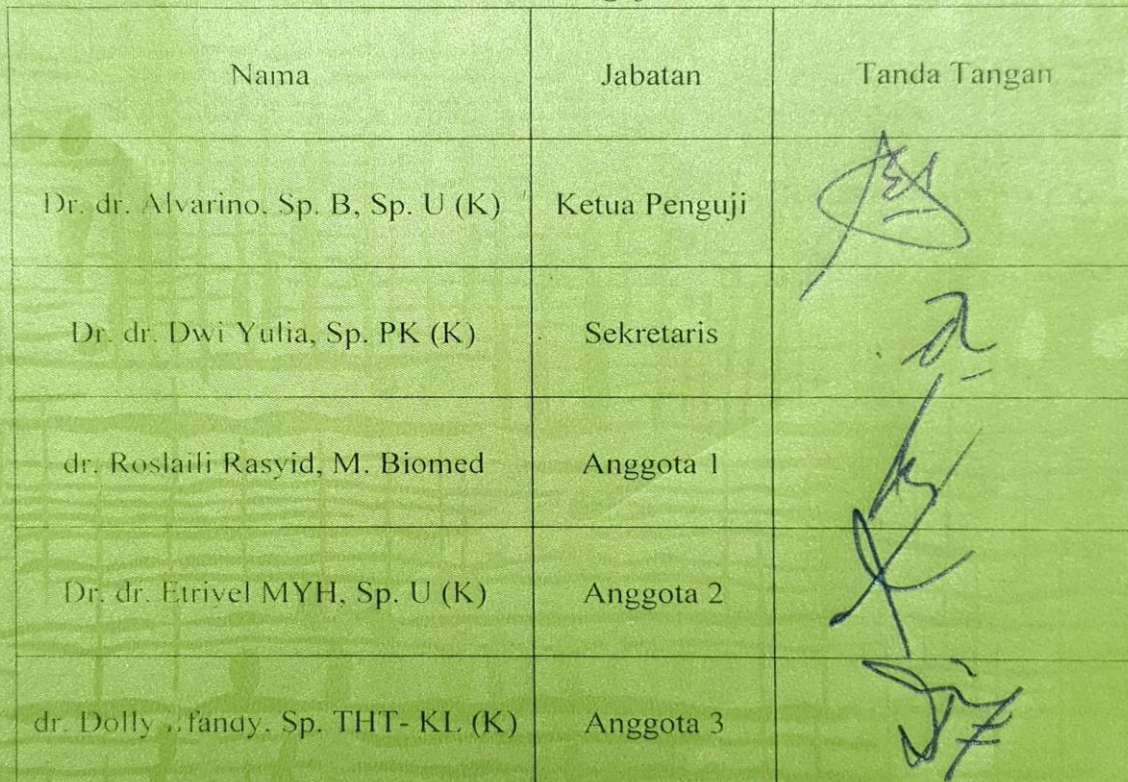 Nama Jabatan Tanda Tangan
Dr. dr. Alvarino, Sp. B, Sp. U (K) Ketua Penguji
Dr. dr. Dwi Yulia, Sp. PK (K) Sekretaris
dr. Roslaili Rasyid, M. Biomed Anggota 1
Dr. dr. Etrivel MYH, Sp. U (K) Anggota 2
dr. Dolly Sp. THT- KL (K) Anggota 3